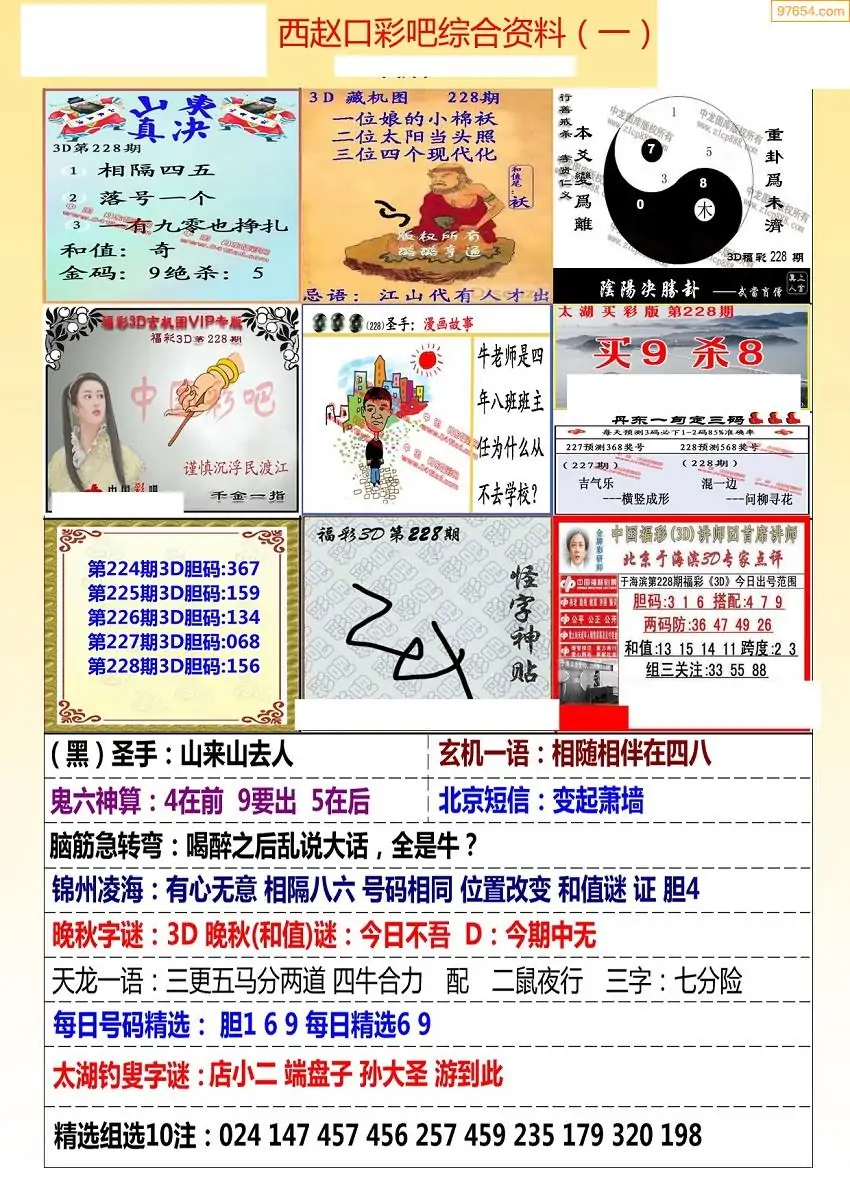 97654.com
西赵口彩吧综合资料（一）
山東
真决
3D第228期
1 相隔四五
2 落号一个
3 一有九零也挣扎
和值：奇
金码：9绝杀：5
3D 藏机图 228期
一位娘的小棉袄
二位太阳当头照
三位四个现代化
和值尾：袄
版权所有
忌语：江山代有人才出
行善戒杀
本爻變爲離
重卦爲未濟
1
7
5
3
8
0
木
中龙图库版权所有
www.zlcp888.com
3D福彩 228 期
陰陽决勝卦
福彩3D玄机图VIP专版
福彩3D第228期
中国彩吧
谨慎沉浮民渡江
千金一指
(228)圣手：漫画故事
牛老师是四
年八班班主
任为什么从
不去学校？
太湖买彩版 第228期
买9 杀8
丹东一句定三码
每天预测3码必下1-2码85%准确率
227预测368奖号 228预测568奖号
（227期） （228期）
吉气乐 混一边
---横竖成形 ---问柳寻花
第224期3D胆码:367
第225期3D胆码:159
第226期3D胆码:134
第227期3D胆码:068
第228期3D胆码:156
福彩3D第228期
怪字神贴
金牌彩研师
中国福彩(3D)讲师团首席讲师
北京于海滨3D专家点评
中国福利彩票
于海滨第228期福彩《3D》今日出号范围
公平 公正 公开
胆码:3 1 6 搭配:4 7 9
两码防:36 47 49 26
和值:13 15 14 11 跨度:2 3
组三关注:33 55 88
（黑）圣手：山来山去人
玄机一语：相随相伴在四八
鬼六神算：4在前 9要出 5在后
北京短信：变起萧墙
脑筋急转弯：喝醉之后乱说大话，全是牛？
锦州凌海：有心无意 相隔八六 号码相同 位置改变 和值谜 证 胆4
晚秋字谜：3D 晚秋(和值)谜：今日不吾 D：今期中无
天龙一语：三更五马分两道 四牛合力 配 二鼠夜行 三字：七分险
每日号码精选： 胆1 6 9 每日精选6 9
太湖钓叟字谜：店小二 端盘子 孙大圣 游到此
精选组选10注：024 147 457 456 257 459 235 179 320 198